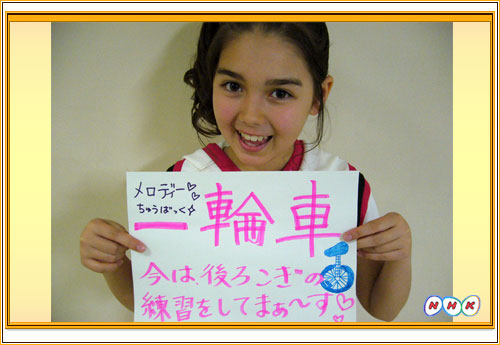 メロディー♡
ちゅうばっく☆
一輪車
今は、後ろこぎの
練習をしてまぁ〜す♡
NHK